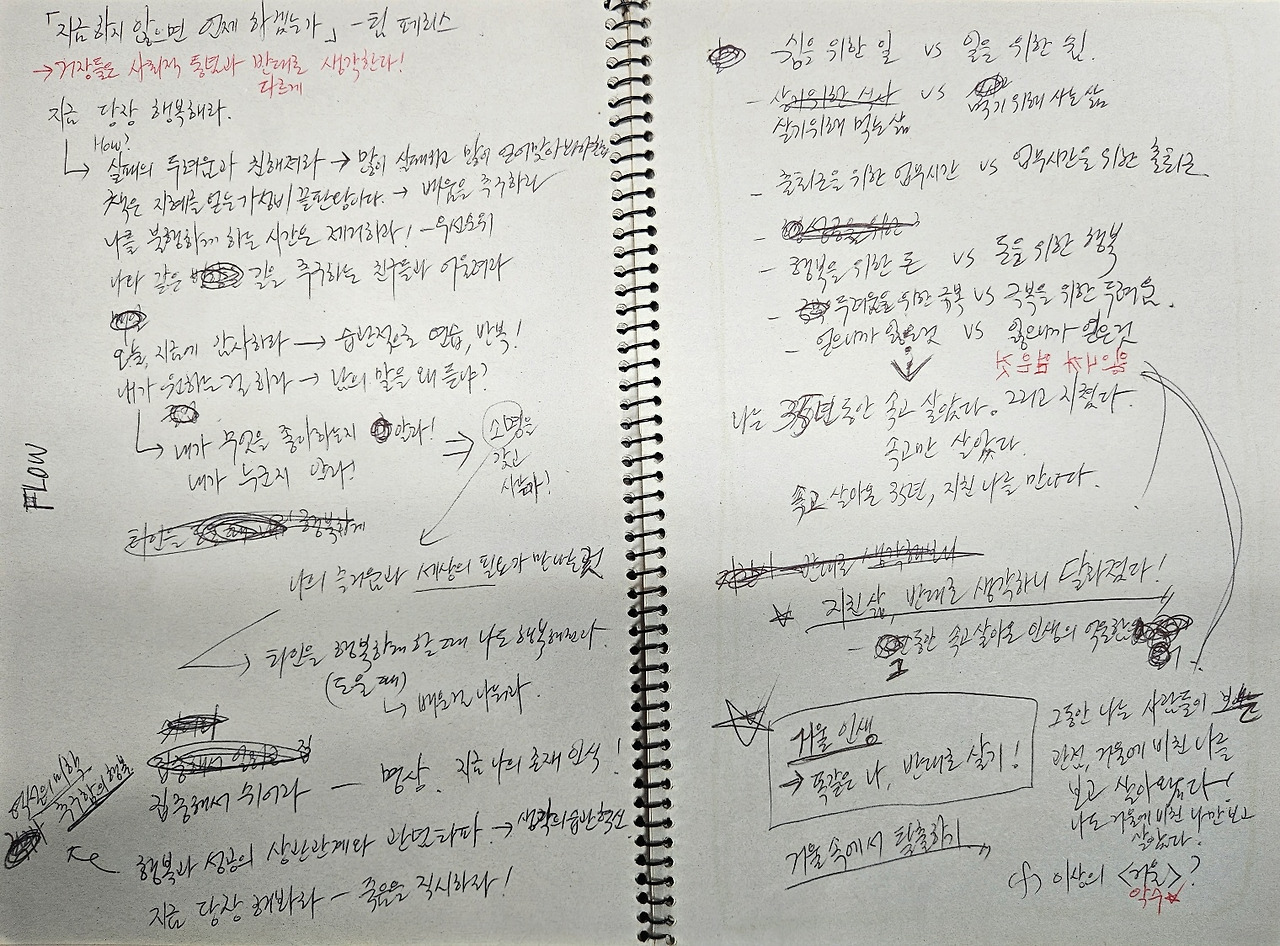 「지금 하지 않으면 언제 하겠는가」 - 팀 페리스
→ 거장들은 사회적 통념과 반대로 생각한다!
다르게
지금 당장 행복해라.
How?
실패의 두려움과 친해져라 → 많이 실패하고 많이 얻어맞아봐야한다
책은 지혜를 얻는 가성비 끝판왕이다. → 배움을 추구하라
나를 불행하게 하는 시간은 제거하라! - 우선순위
나와 같은 길을 추구하는 친구들과 어울려라
오늘, 지금에 감사하라 → 습관적으로 연습, 반복!
내가 원하는 걸 하라 → 남의 말을 왜 듣냐?
내가 무엇을 좋아하는지 알라! ⇒ 소명을
갖고
살아가라!
내가 누군지 알라!
FLOW
타인을 행복하게
나의 즐거움과 세상의 필요가 만나는 곳
타인을 행복하게 할 때 나도 행복해진다
(도울 때)
배운걸 나눠라.
집중해서
집중해서 쉬어라 - 명상. 지금 나의 존재 인식!
추구함의 행복
행복과 성공의 상관관계와 관련 → 생각의 습관 혁신
지금 당장 해봐라 - 죽음을 직시하라!
- 쉼을 위한 일 vs 일을 위한 쉼.
- 살기위한 식사 vs 먹기 위해 사는 삶
살기위해 먹는 삶
- 출퇴근을 위한 업무시간 vs 업무시간을 위한 출퇴근
- 행복을 위한 돈 vs 돈을 위한 행복
- 두려움을 위한 극복 vs 극복을 위한 두려움.
- 얻으니까 잃은것 vs 잃으니까 얻은것
나는 35년 동안 속고 살았다. 그리고 지쳤다.
속고만 살았다.
속고 살아온 35년, 지친 나를 만나다.
반대로 생각해보니
☆ 지친 삶, 반대로 생각하니 달라졌다!
- 동안 속고 살아온 인생의
☆ 거울 인생
→ 똑같은 나, 반대로 살기!
거울 속에서 탈출하기
그동안 나는 사람들이 보는
관점, 거울에 비친 나를
보고 살아왔다!
나도 거울에 비친 나만 보고
살았다.
cf) 이상의 <거울>?
악수☆